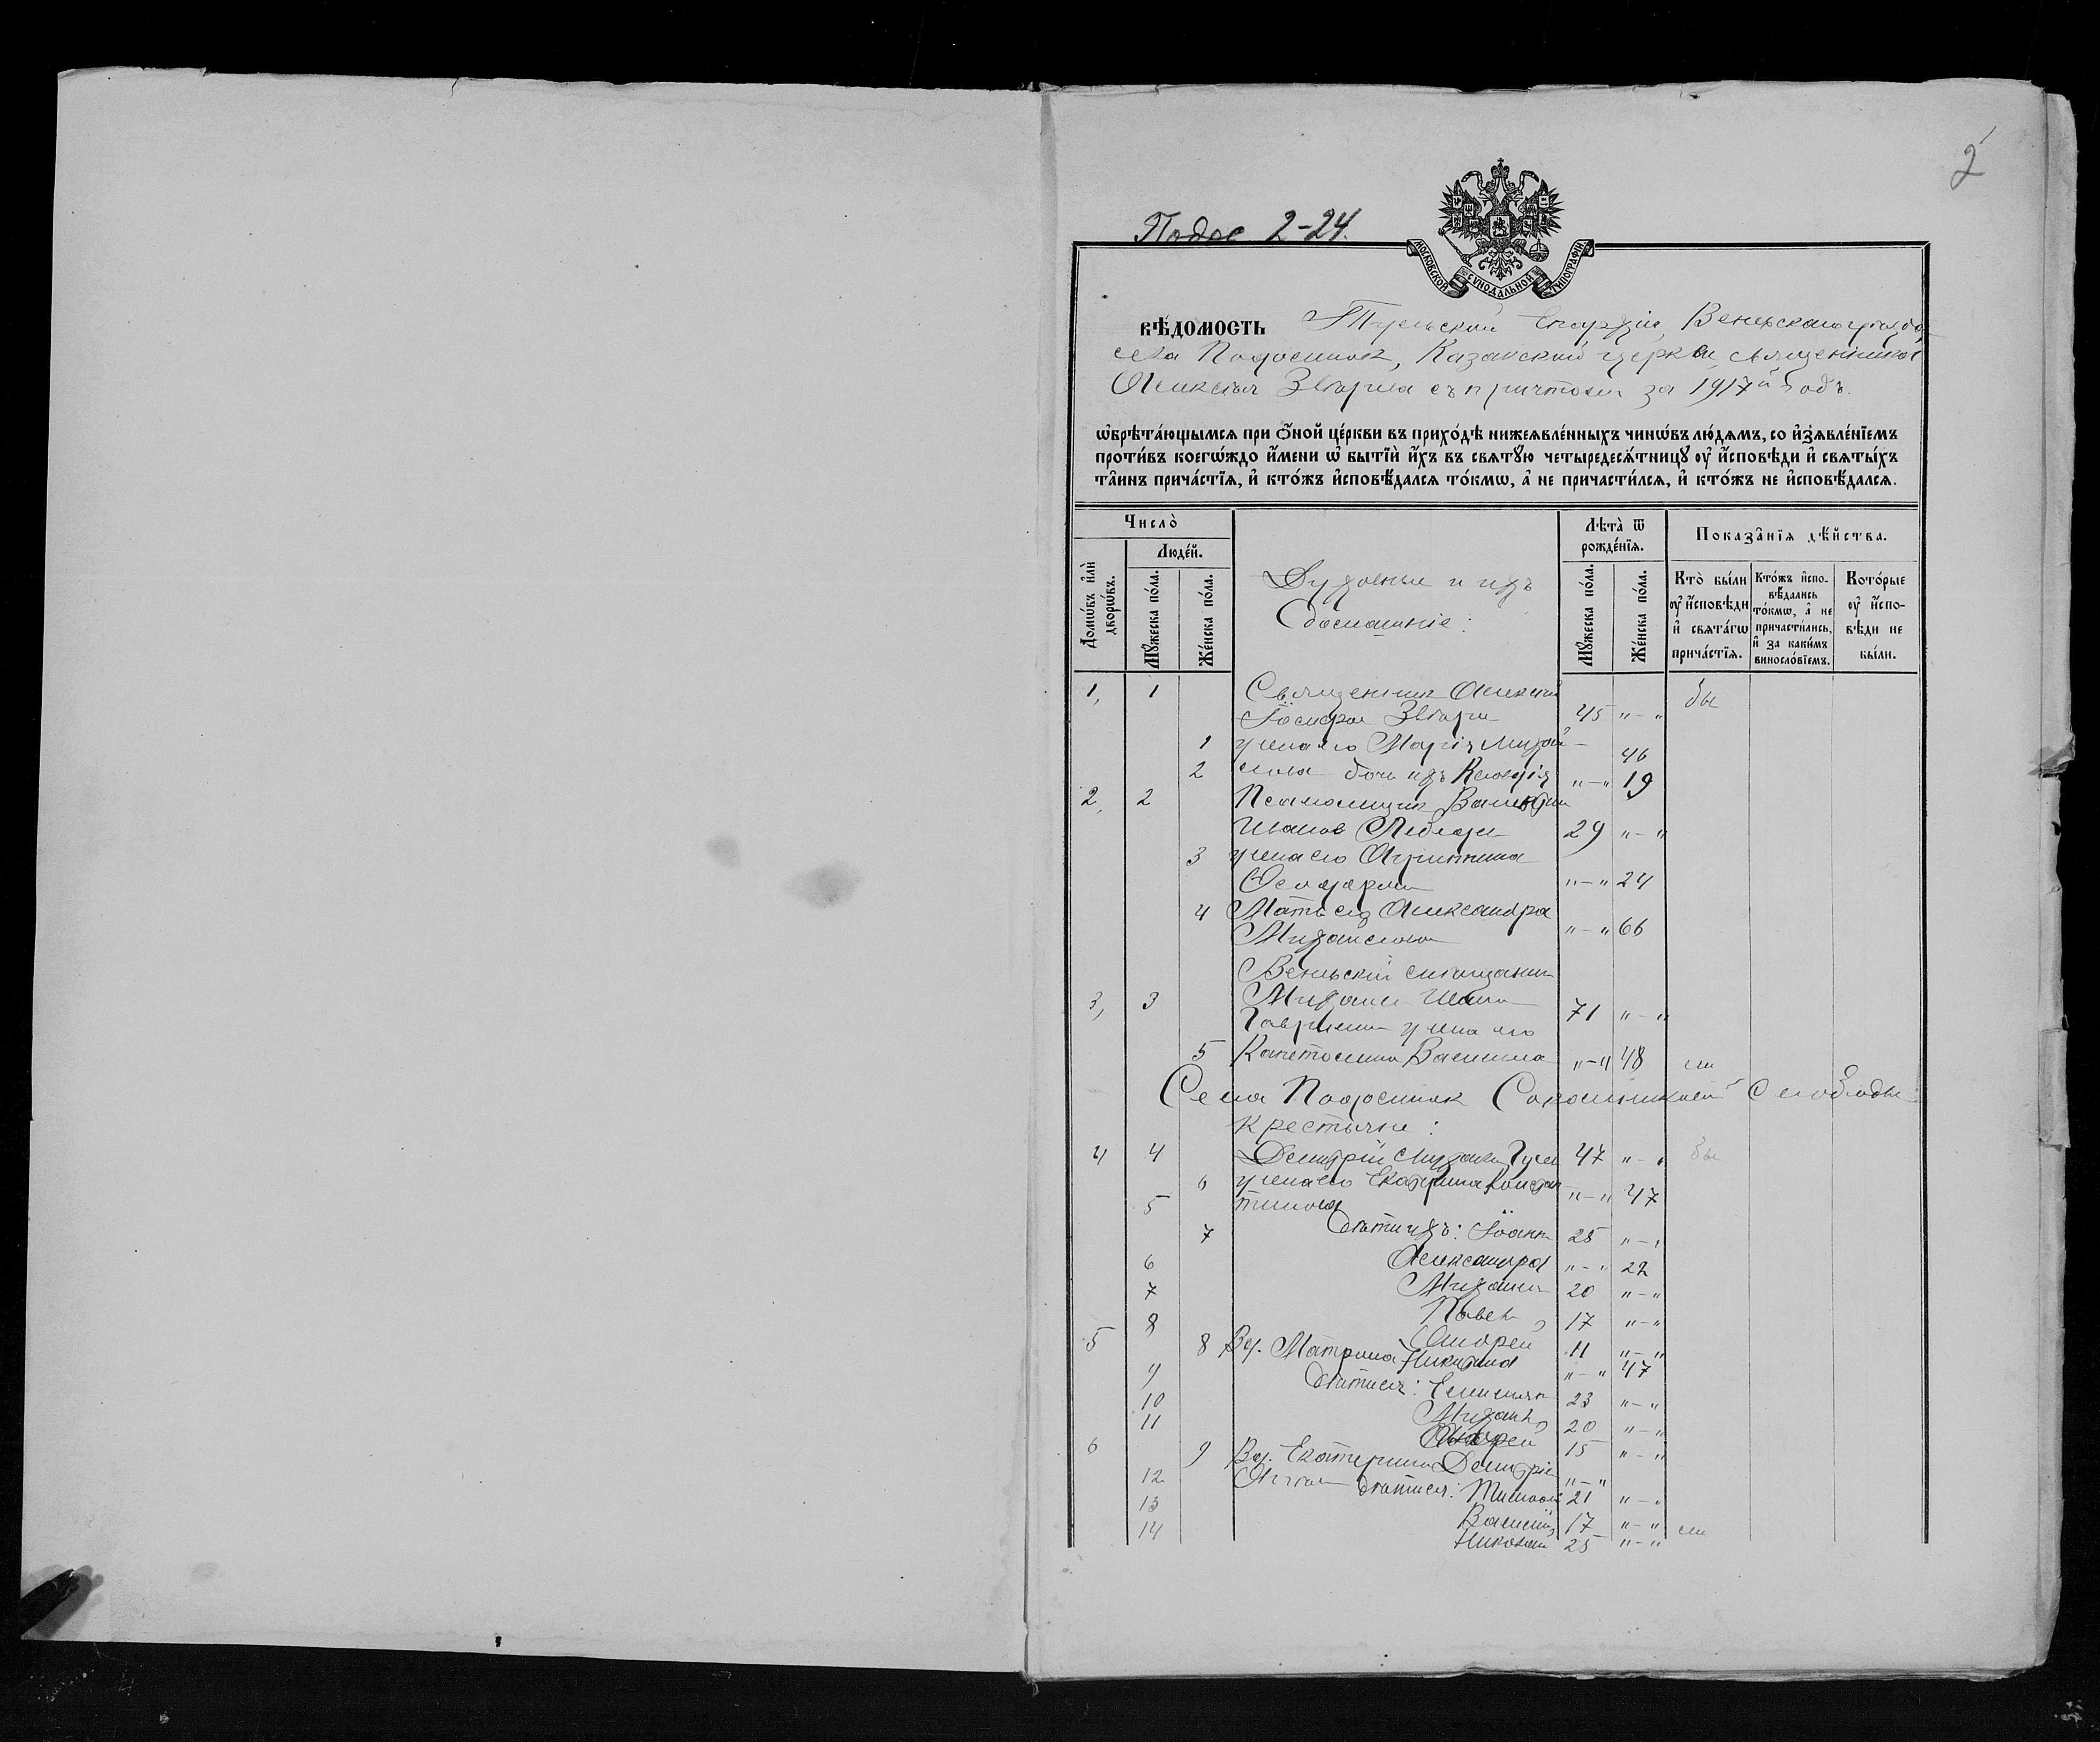 2
Подос 2-24.
МОСКОВСКОЙ СѴНОДАЛЬНОЙ ТИПОГРАФІИ
вѣ́домость Тульской Епархіи, Веневскаго уѣзда,
села Подосинок, Казанской церкви, священника
Алексѣя съ причтом за 1917й годъ.
ѡ҆брѣта́ющымся при ѻ҆́ной це́ркви въ прихо́дѣ нижеявле́нныхъ чинѡ́въ лю́дямъ, со и҆з̾явле́нїемъ
проти́въ коегѡ́ждо и҆́мени ѡ҆ бытїѝ и҆́хъ въ свяꙋ́ю четыредеся́тницꙋ ᲂу҆ и҆́сповѣди и҆ святы́хъ
та̑инъ прича́стїя, и҆ кто́жъ и҆сповѣ́дался то́кмѡ, а҆ не причасти́лся, и҆ кто́жъ не и҆сповѣ́дался.
Число̀
Люде́й.
Домѡ́въ и҆лѝ дворѡ́въ.
Мꙋ́жеска по́ла.
Же́нска по́ла.
Духовные и ихъ
домашніе:
Лѣта̀ ѿ рожде́нїя.
Мꙋ́жеска по́ла.
Же́нска по́ла.
Показа̑нїя дѣ́йства.
Кто̀ бы́ли ᲂу҆ и҆́сповѣди и҆ свята́гѡ прича́стїя.
Кто́жъ и҆спо-вѣ́дались то́кмѡ, а҆ не причасти́лись, и҆ за каки́мъ винослѡ́вїемъ.
Кото́рые ᲂу҆ и҆́спо-вѣди не бы́ли.
1, 1 Священник Алексѣй бы
Іосифов 45 "-"
1 жена его Марія Михай- 46
2 лова дочь ихъ Клавдія "-" 19
2, 2 Псаломщик Валентин
Иванов Лебедев 29 "-"
3 жена его Агриппина
"-" 24
4 Мать его Александра
Михайлова "-" 66
Веневскій мѣщанин
3, 3 Михаил Иванов 71 "-"
Гаврилин жена его
5 Капитолина Васильева "-" 48 ли
Села Подосинок Слободы
крестьяне:
4 4 Димитрій Михайлов Гусев 47 "-" бы
6 жена его Екатерина Констан "-" 47
5 тинова
7 дѣти ихъ: Іоанн 25 "-"
6 Александра "-" 22
7 Михаил 20 "-"
8 Павел, 17 "-"
5 Андрей 11 "-"
8 Вд. Матрона Никитина "-" 47
9 дѣти ея: Емилиян 23 "-"
10 Михаил, 20 "-"
11 Андрей 15 "-"
6 9 Вд. Екатерина Димитріе "-"
12 дѣти ея: Тимофей 21 "-"
13 Василій, 17 "-" ли
14 Николай 25 "-"